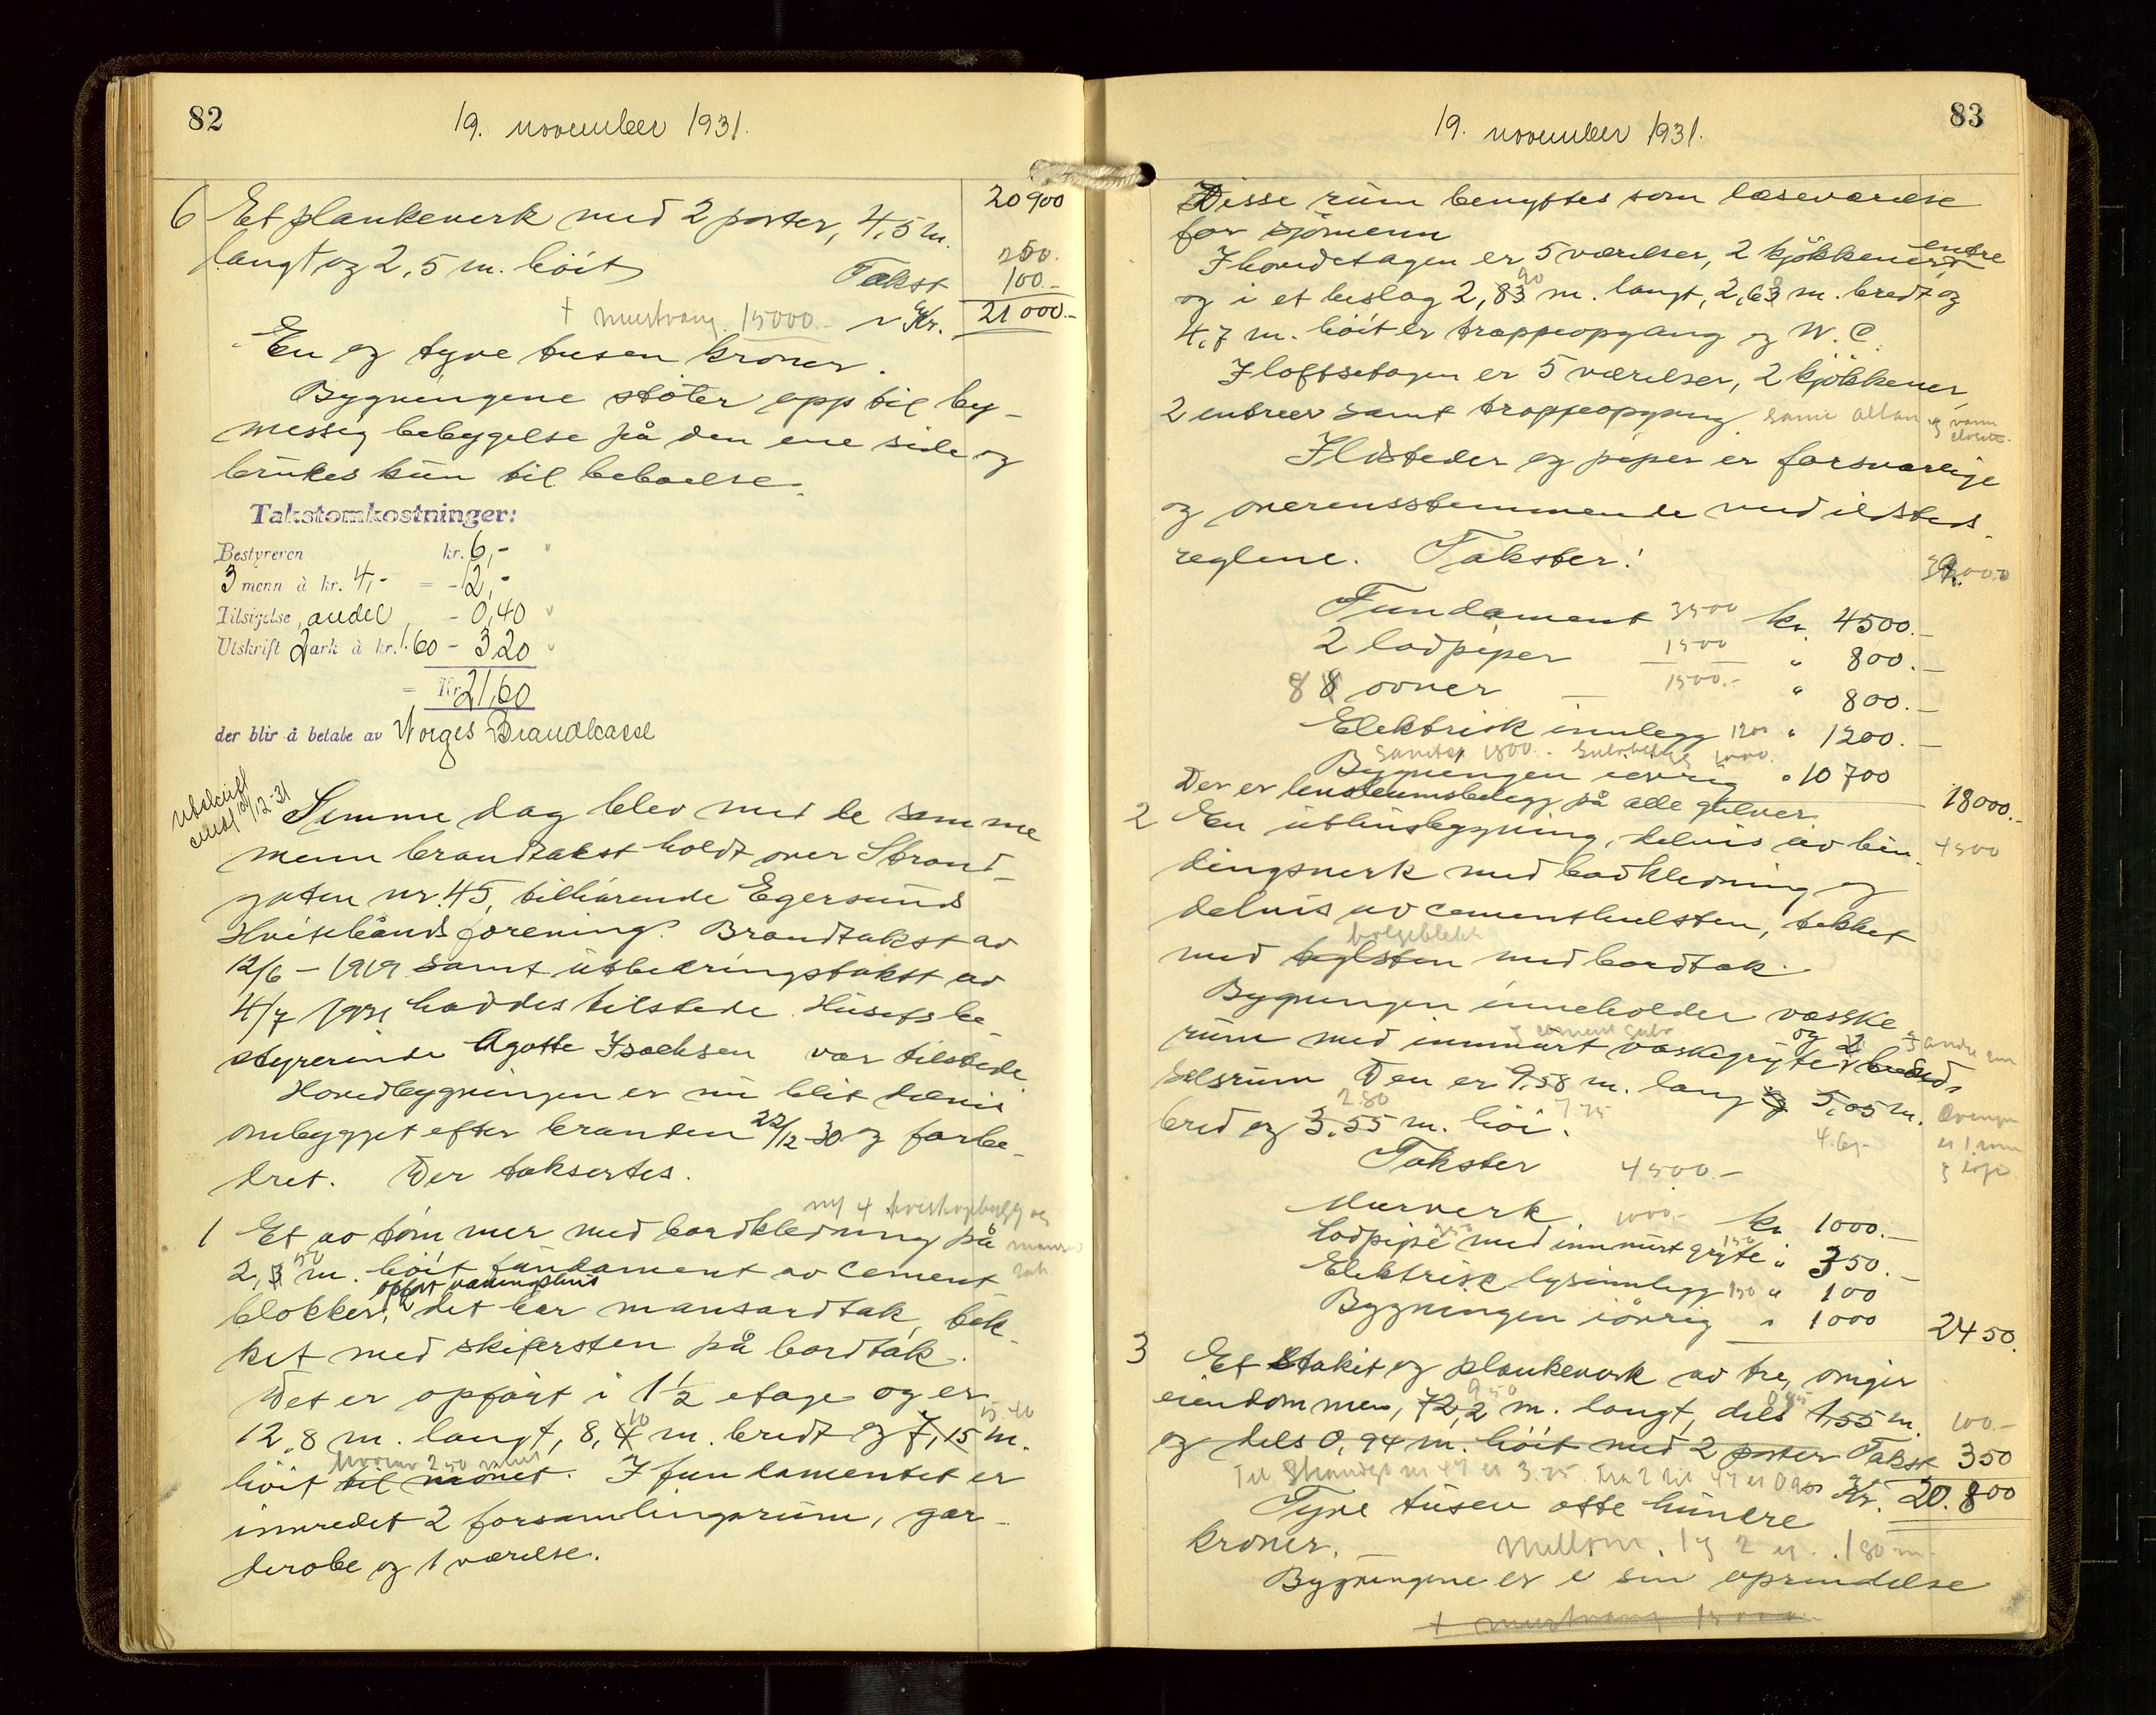 82
19. november 1931.
20900
6 Et plankeverk med 2 porter, 4,5 m.
langt og 2,5 m. höit
250.
Takst 100.-
+ murtvang 15000.- Kr. 21000.-
En og tyve tusen kroner.
Bygningene stöter opp til by-
messig bebygelse på den ene side og
brukes kun til beboelse.
Takstomkostninger:
Bestyreren kr. 6,-
3 menn à kr. 4,- = - 12,-
Tilsigelse, andel - 0,40
Utskrift 2 ark à kr. 1.60 - 3,20
= Kr. 21,60
der blir å betale av Norges Brandkasse
Utskrift
10/12-31
Samme dag blev med de samme
menn brandtakst holdt over Strand-
gaten nr. 45, tilhörende Egersunds
Hvitebånds forening. Brandtakst av
12/6 - 1919 samt utbedringstakst av
4/7 1931 haddes tilstede. Husets be-
styrerinde Agotte Isachsen var tilstede.
Hovedbygningen er nu blit delvis
ombygget efter branden 22/12-30 og forbe-
dret. Der taksertes.
1 Et av tömmer med bordkledning på
2,3 m. höit fundament av cement
opfört vaaningshus
blokker, det har mansardtak, tek-
ket med skifersten på bordtak.
Det er opfört i 1½ etage og er
10
12,8 m. langt, 8,4 m. bredt og 7,15 m.
höit til mönet. I fundamentet er
innredet 2 forsamlingsrum, gar-
derobe og 1 værelse.
83
19. november 1931.
Disse rum benyttes som læseværelse
for sjömenn
I hovedetagen er 5 værelser, 2 kjökkener, entre
90
og i et beslag 2,83 m. langt, 2,63 m. bredt og
4,7 m. höit er trappeopgang og W.C.
I loftsetagen er 5 værelser, 2 kjökkener,
2 entreer samt trappeopgang. samt altan og
Ildsteder og piper er forsvarlige
og overensstemmende med ildsteds-
reglene. Takster:
Fundament 3500 kr. 4500.-
2 lodpiper 1500 " 800.-
8 8 ovner 1500.- " 800.-
Elektrisk innlegg 1200 " 1200.-
Bygningen iövrig " 10700
Der er linoleumsbelegg på alle gulver 18000.-
2 En uthusbygning, delvis av bin- 4500
dingsverk med bordkledning og
delvis av cementhulsten, tekket
bölgeblekk
med teglsten med bordtak.
Bygningen inneholder vasske-
og cement gulv
rum med innmurt vaskegryte og 2
delsrum. Den er 9,58 m. lang og 5,05 m.
2.80 7.75
bred og 3,55 m. höi.
Takster 4500.-
Murverk 1000.- kr. 1000.-
Lodpipe med innmurt gryte " 350.-
Elektrisk lysinnlegg 150 " 100
Bygningen iövrig " 1000 2450.
3 Et stakit og plankeverk av tre, omgir
eiendommen, 72,2 m. langt, dels 1,55 m. 100.-
og dels 0,94 m. höit med 2 porter Takst 350
Kr. 20.800
Tyve tusen otte hundre
kroner. -
Mellom 1 og 2 er 1,80 m.
Bygningene er i sin oprindelse
+ murtvang 15000.-